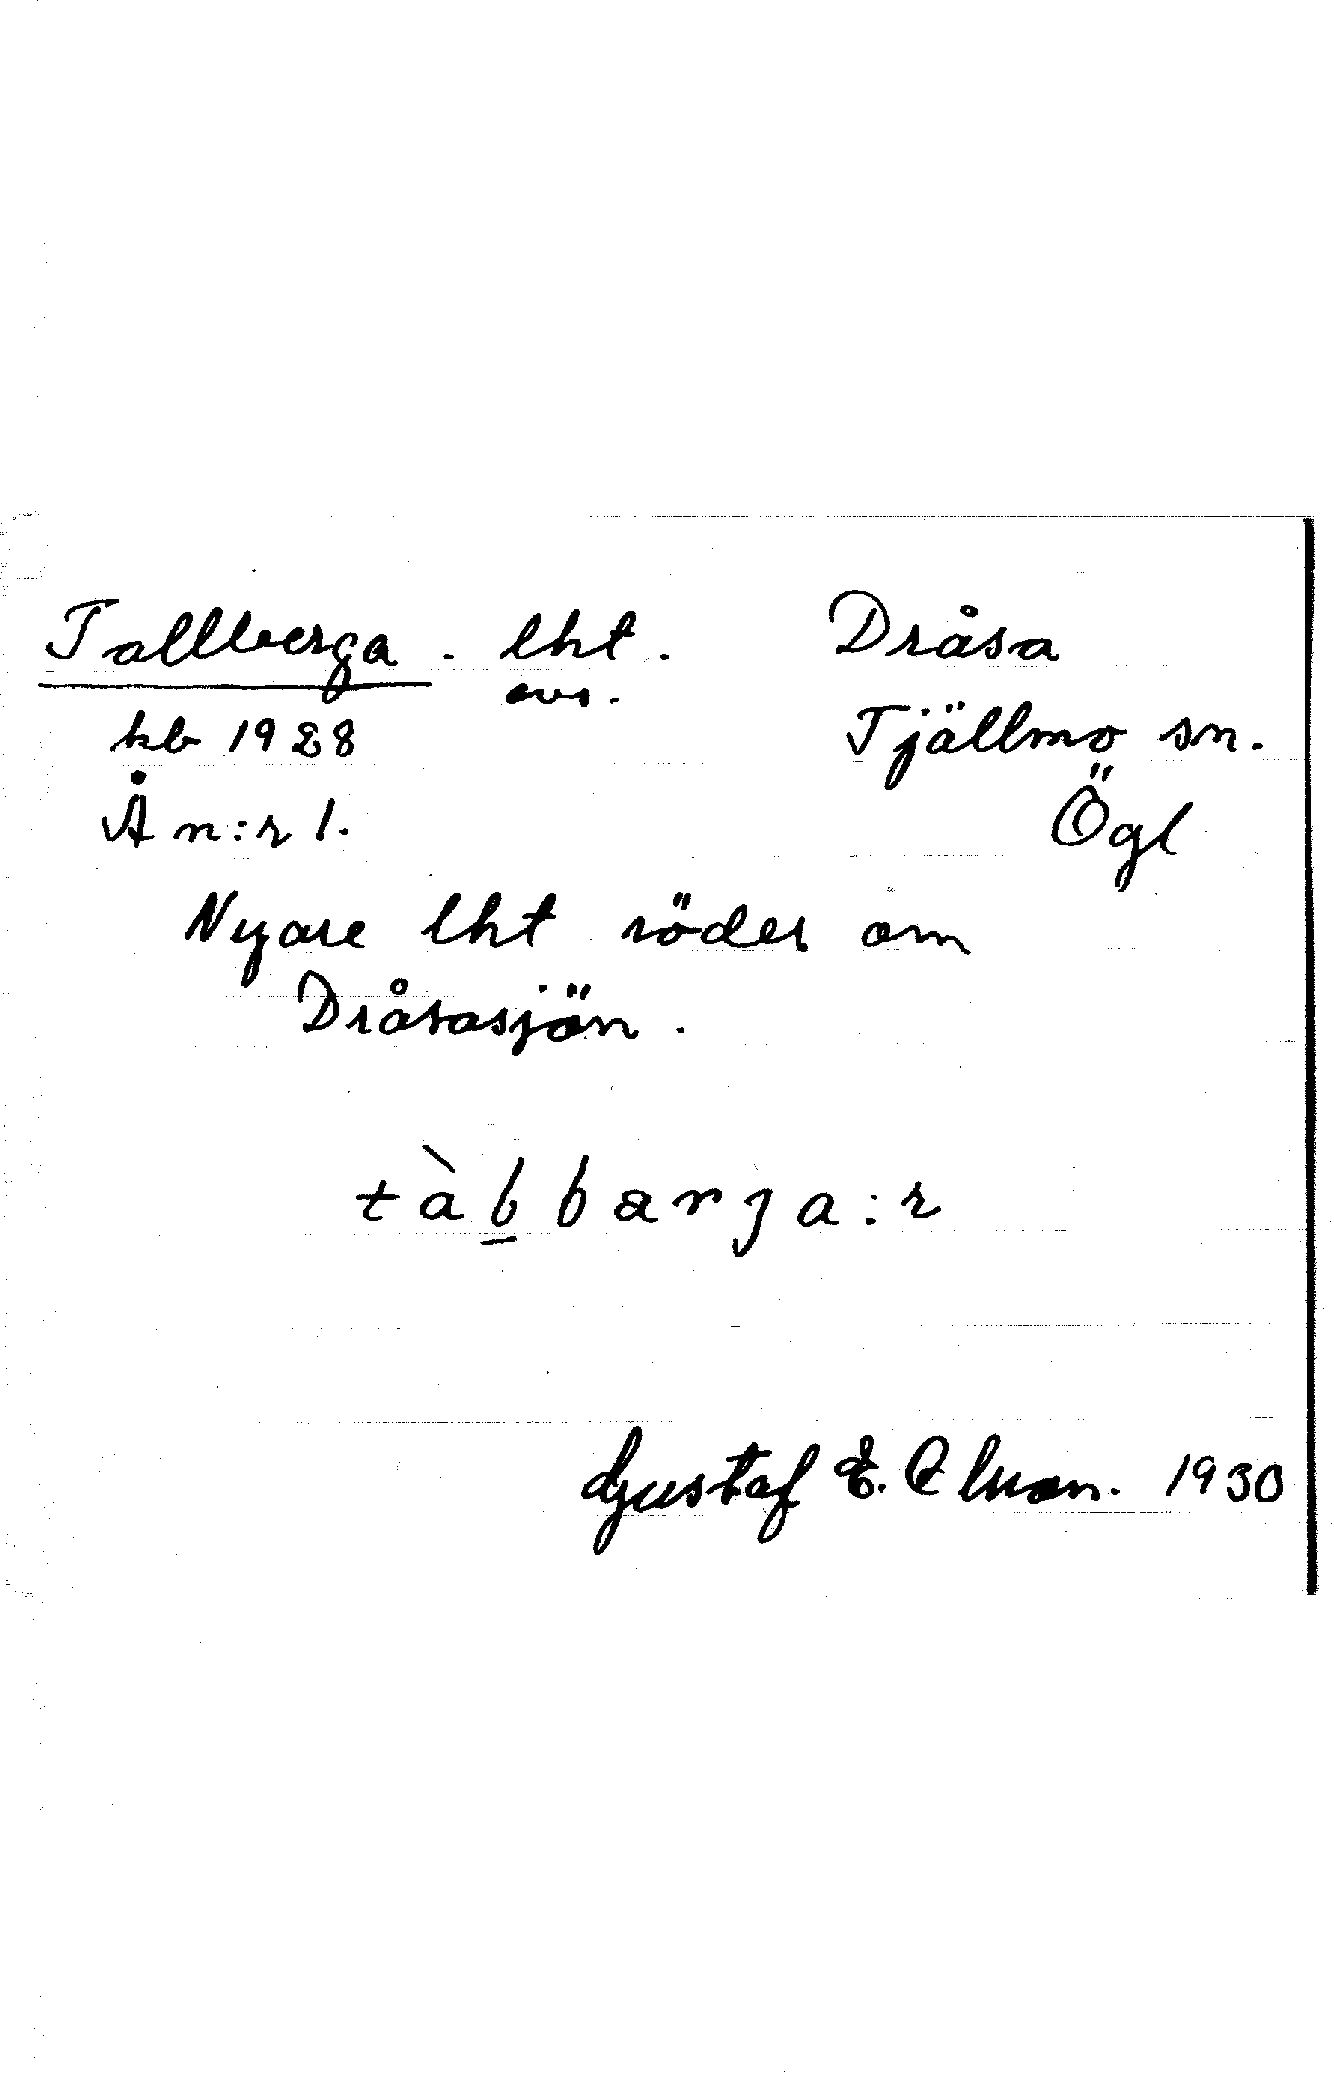 Tallberga. lht. Dråsa
avs.
kb 1928 Tjällmo sn.
Å n:r 1. Ögl
Nyare lht söder om
Dråsasjön.
tàbbarja:r
Gustaf E. Elman. 1930